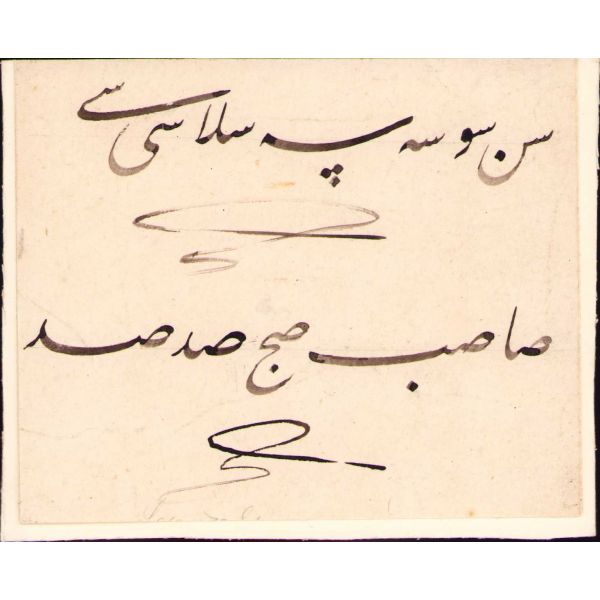 سن سو سه سپه سلا سی سے
صا صب صج صد صد